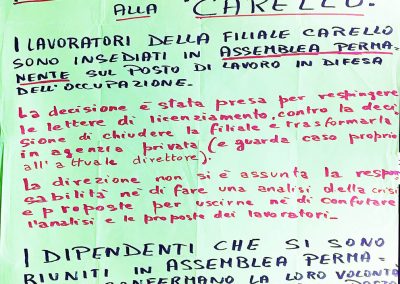 ALLA CARELLO.
I LAVORATORI DELLA FILIALE CARELLO
SONO INSEDIATI IN ASSEMBLEA PERMA-
NENTE SUL POSTO DI LAVORO IN DIFESA
DELL'OCCUPAZIONE.
La decisione è stata presa per respingere
le lettere di licenziamento, contro la deci
sione di chiudere la filiale e trasformarla
in agenzia privata (e guarda caso proprio
all'attuale direttore).
La direzione non si è assunta la respon
sabilità nè di fare una analisi della crisi
e proposte per uscirne nè di confutare
l'analisi e le proposte dei lavoratori.-
I DIPENDENTI CHE SI SONO
RIUNITI IN ASSEMBLEA PERMA=
CONFERMANO LA LORO VOLONTÀ